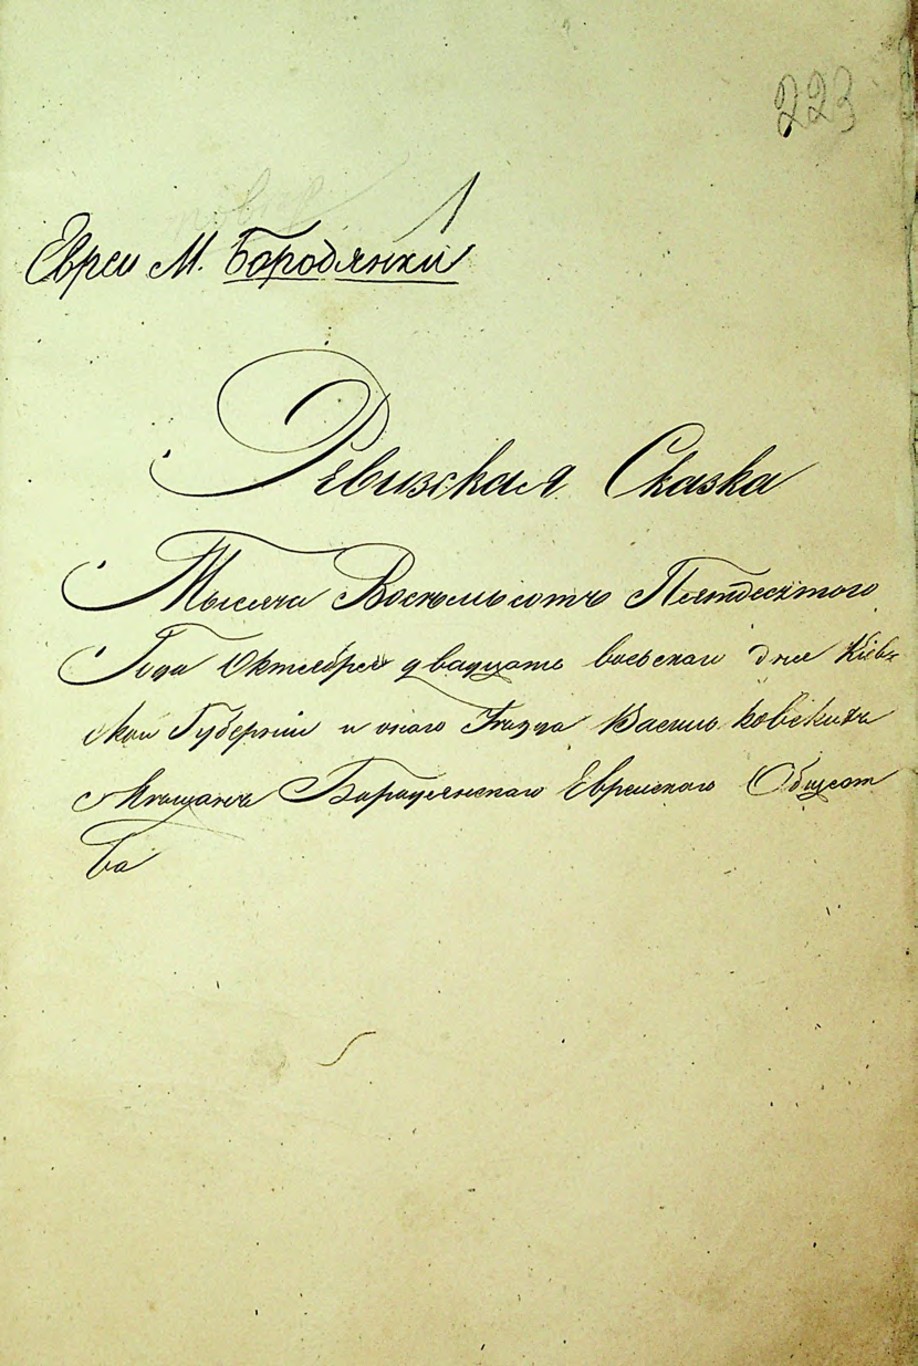 223
Евреи М. Бородянки
Ревизская Сказка
Тысяча Восемьсотъ Пятдесятого
Года Октября двадцать дня Кіев-
ской Губерніи и Василь ковскихъ
Мѣщанъ Бородянского Еврейского Общест
ва